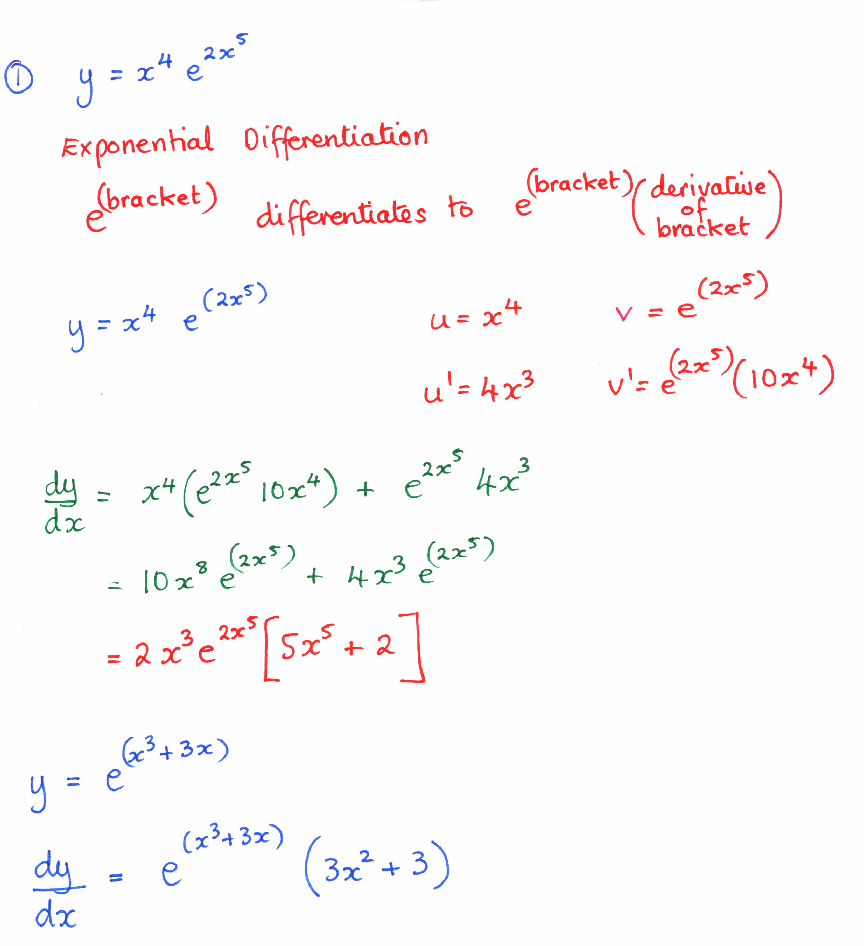 ① y = x⁴ e^{2x⁵}
Exponential Differentiation
e^{(bracket)} differentiates to e^{(bracket)} (derivative of bracket)
y = x⁴ e^{(2x⁵)} u = x⁴ v = e^{(2x⁵)}
u' = 4x³ v' = e^{(2x⁵)}(10x⁴)
dy/dx = x⁴(e^{2x⁵} 10x⁴) + e^{2x⁵} 4x³
= 10x⁸ e^{(2x⁵)} + 4x³ e^{(2x⁵)}
= 2x³e^{2x⁵}[5x⁵ + 2]
y = e^{(x³+3x)}
dy/dx = e^{(x³+3x)} (3x² + 3)